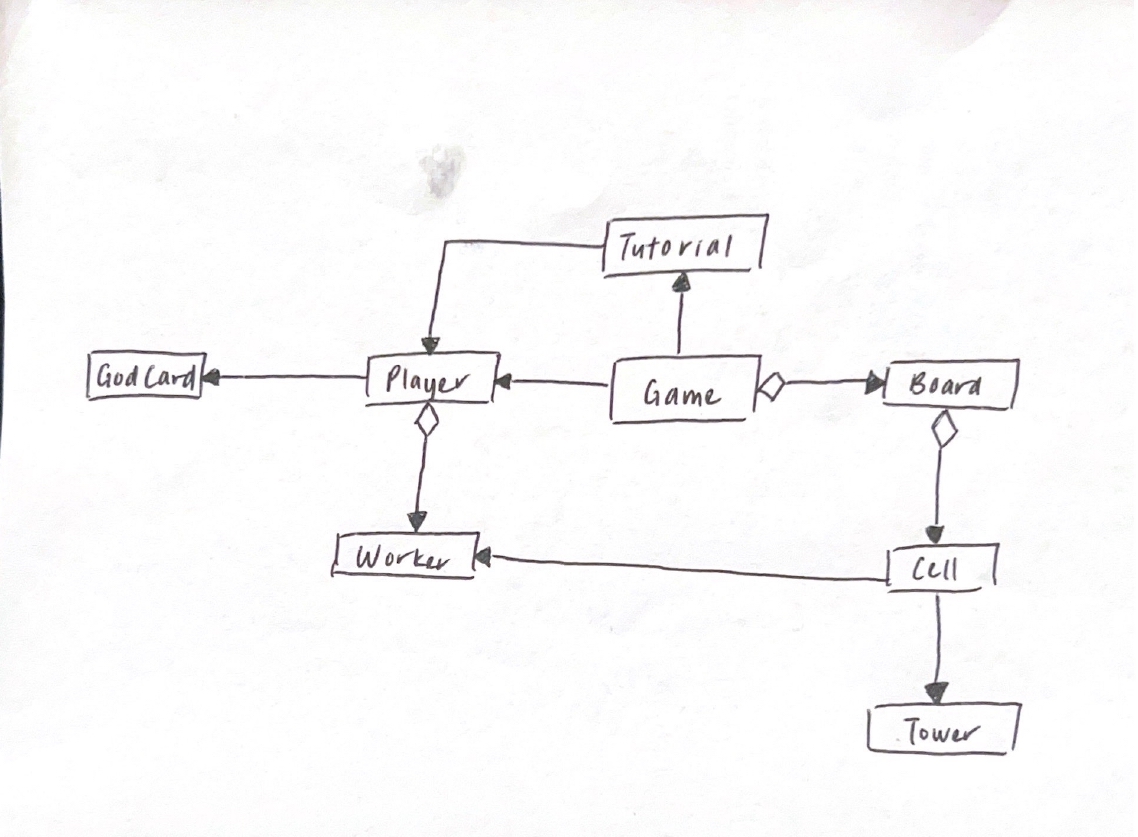 Tutorial
God Card
Player
Game
Board
Worker
Cell
Tower